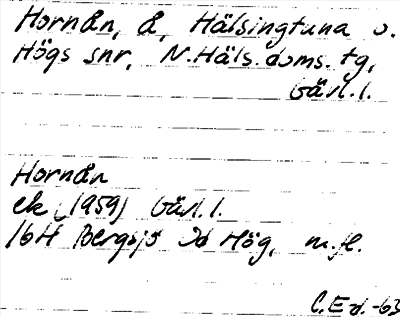 Hornån, å, Hälsingtuna o.
Högs snr, N.Häls.doms.tg,
Gävl.l.
Hornån
ek (1959) Gävl.l.
16H Bergsjö Sd Hög, m.fl.
C.Ed.-63